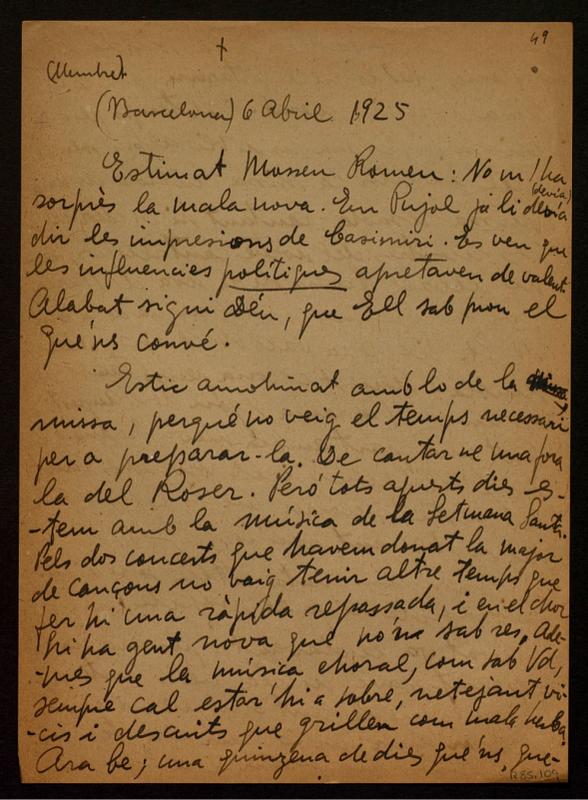 49
+
(Membret)
(Barcelona) 6 Abril 1925
Estimat Mossen Romeu: No m'ha
(devia)
sorprès la mala nova. En Pujol ja li devia
dir les impresions de Casimiri. Es veu que
les influencies polítiques apretaven de valent.
Alabat sigui Déu, que Ell sab prou el
que'ns convé.
Estic amohinat amb lo de la
missa, perqué no veig el temps necessari
per a preparar-la. De cantar ne una fora
la del Roser. Peró tots aquests dies es-
-tem amb la música de la Setmana Santa.
Pels dos concerts que havem donat la major
de cançons no vaig tenir altre temps que
fer hi una ràpida repassada, i en el chor
hi ha gent nova que no'n sab res. Ade-
-mes que la música choral, com sab Vd,
sempre cal estar'hi a sobre, netejant vi-
-cis i descuits que grillen com mala herba.
Ara be; una quinzena de dies que'ns que-
R 85.109